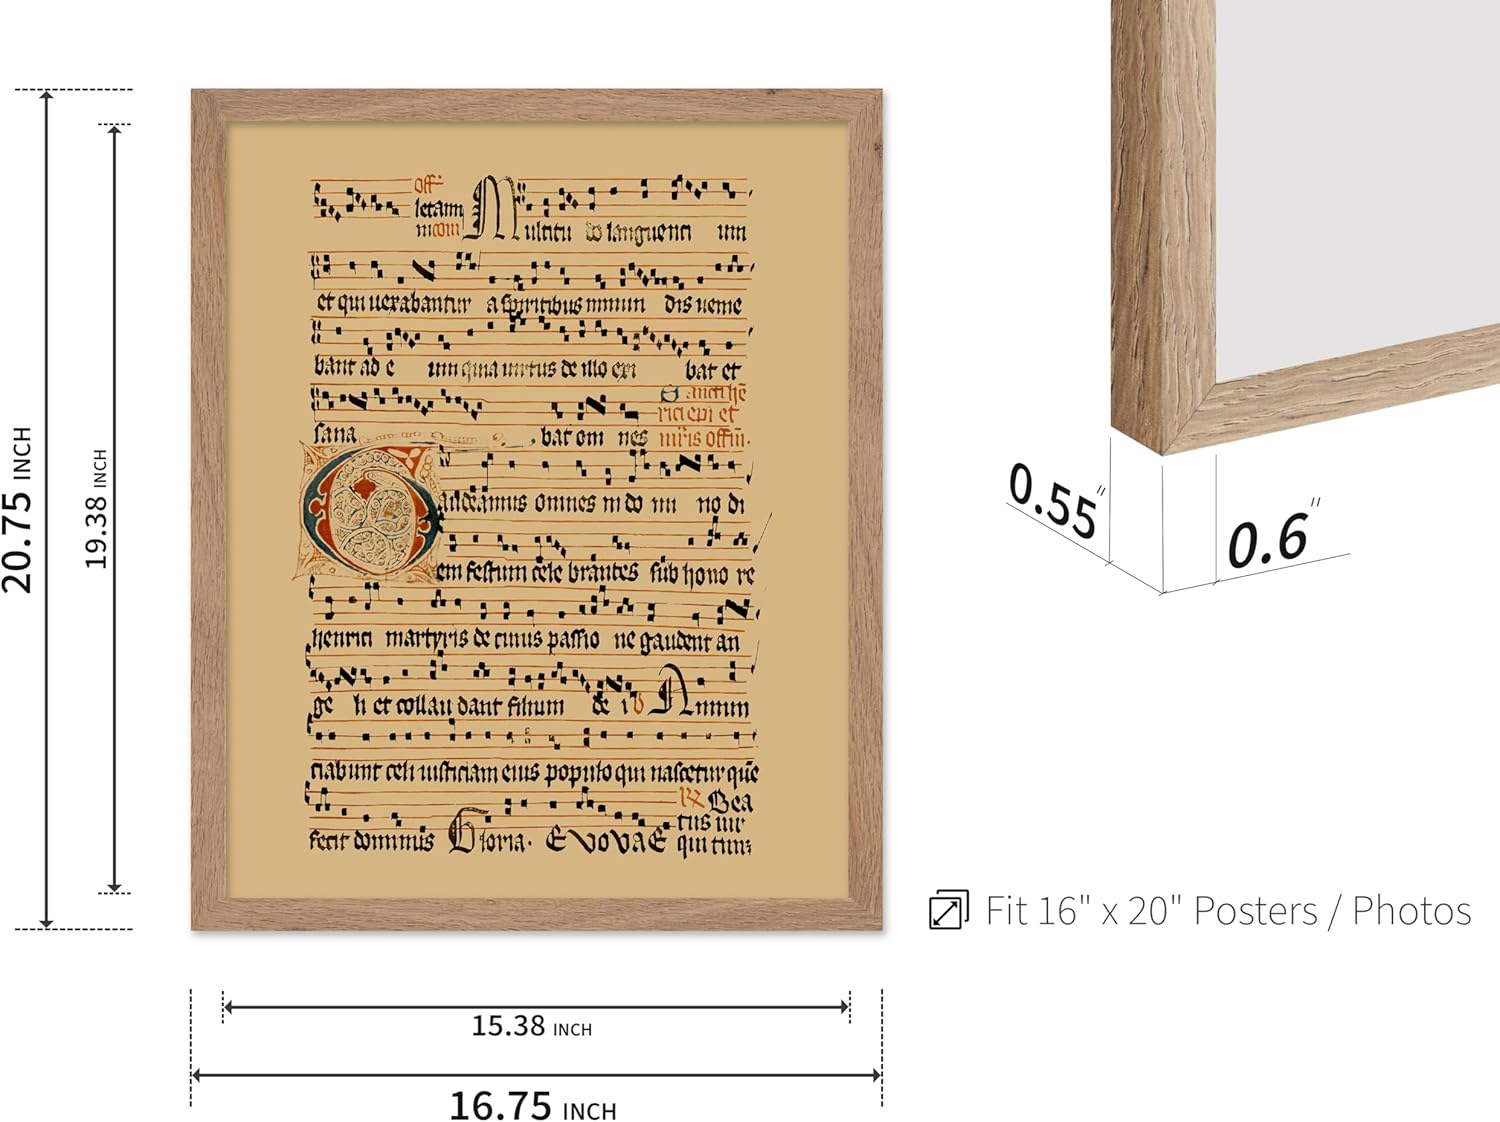 20.75 INCH
19.38 INCH
off
letam
Multitu do languenti um
et qui uexabantur a spiritibus inmun dis uenie
bant ad e um quia uirtus de illo exi bat et
Sancti he
rici epi et
sana bat om nes mris offm.
Gaudeamus omnes in do mi no di
em festum cele brantes sub hono re
henrici martyris de cuius passio ne gaudent an
ge li et collau dant filium de i Annun
ciabunt celi iusticiam eius populo qui nascetur que
Bea
tus uir
fecit dominus Gloria. EVOVAE qui
15.38 INCH
16.75 INCH
0.55"
0.6"
Fit 16" x 20" Posters / Photos